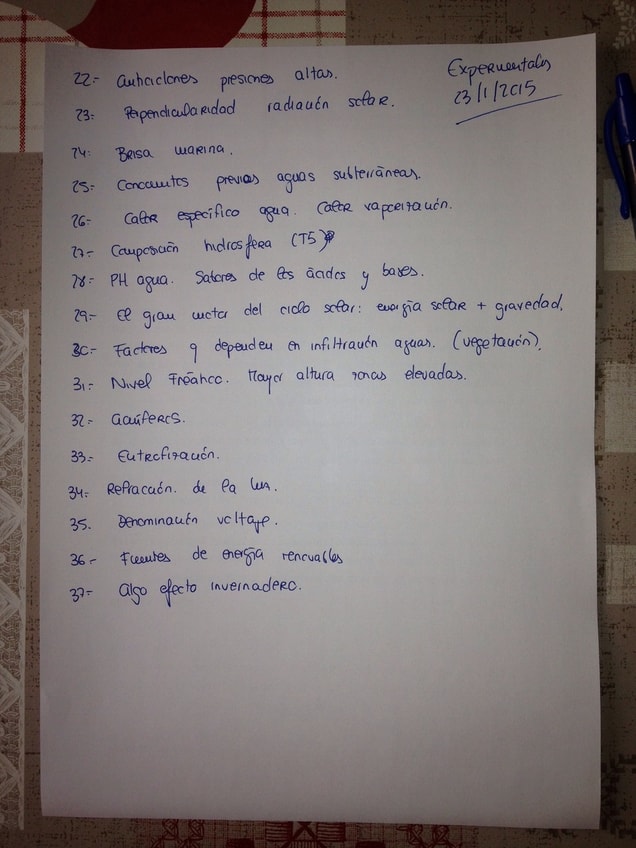 Experimentales
23/1/2015
22.- Anticiclones presiones altas.
23.- Perpendicularidad radiación solar.
24.- Brisa marina.
25.- Conocimientos previos aguas subterráneas.
26.- Calor específico agua. Calor vaporización.
27.- Composición hidrosfera (T5)
28.- PH agua. Sabores de los ácidos y bases.
29.- El gran motor del ciclo solar: energía solar + gravedad.
30.- Factores q dependen en infiltración aguas. (vegetación).
31.- Nivel Freático. Mayor altura zonas elevadas.
32.- Acuíferos.
33.- Eutrofización.
34.- Refracción. de la luz.
35. Denominación voltaje.
36.- Fuentes de energía renovables
37.- Algo efecto invernadero.